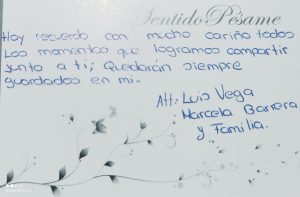 Sentido Pésame
Hoy recuerdo con mucho cariño todos
Los momentos que logramos compartir
junto a ti; Quedarán siempre
guardados en mi..
Att: Luis Vega
Marcela Barrera
y Familia.